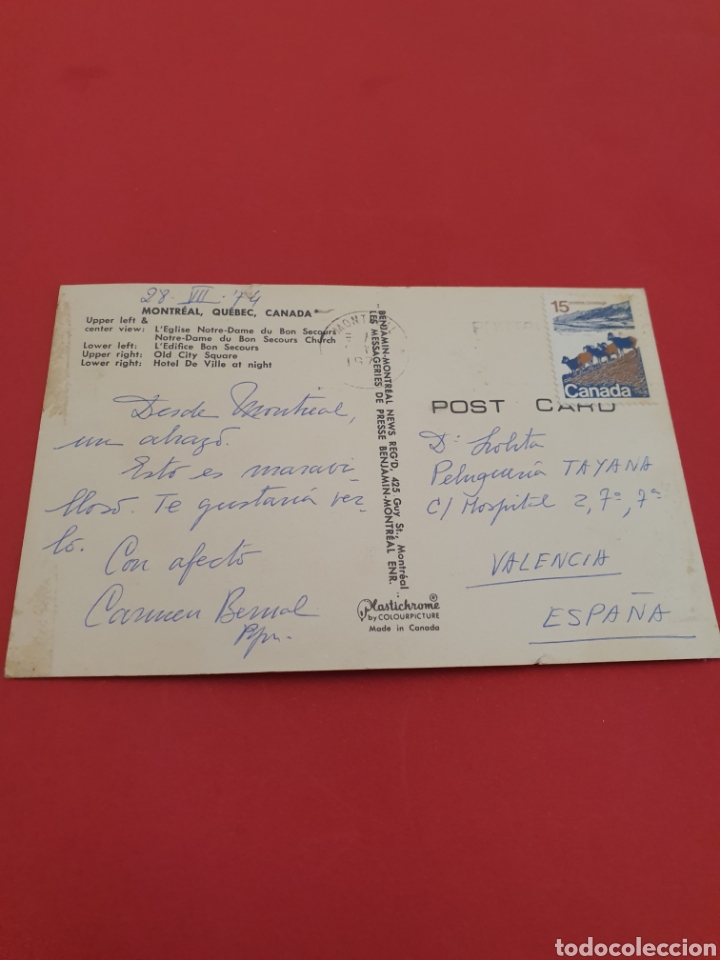 28. VII. '74
MONTRÉAL, QUÉBEC, CANADA
Upper left &
center view: L'Eglise Notre-Dame du Bon Secours
Notre-Dame du Bon Secours Church
Lower left: L'Edifice Bon Secours
Upper right: Old City Square
Lower right: Hotel De Ville at night
Desde Montreal,
un abrazo.
Esto es maravi-
lloso. Te gustaría ver-
lo.
Con afecto
Carmen Bernal
BENJAMIN-MONTRÉAL NEWS REG'D, 425 Guy St., Montréal
LES MESSAGERIES DE PRESSE BENJAMIN-MONTRÉAL ENR.
Plastichrome®
by COLOURPICTURE
Made in Canada
MONTREAL
15
Canada
POST CARD
Dª Lolita
Peluquería TAYANA
C/ Hospital 2, 7º, 7ª
VALENCIA
ESPAÑA
todocoleccion